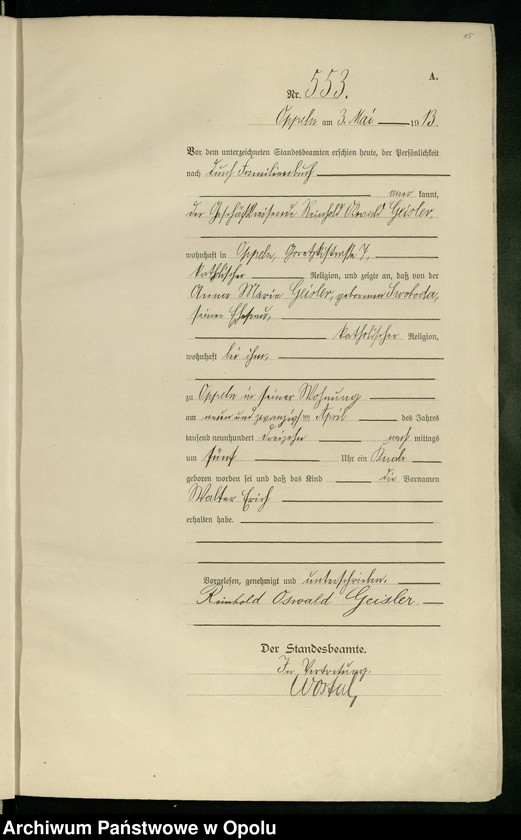 15
A.
Nr. 553.
Oppeln am 3. Mai 1913.
Vor dem unterzeichneten Standesbeamten erschien heute, der Persönlichkeit
nach durch Familienbuch
aner kannt,
der Geschäftsreisende Reinhold Oswald Geisler,
wohnhaft in Oppeln, 7,
katholischer Religion, und zeigte an, daß von der
Anna Marie Geisler, geborenen Swoboda,
seiner Ehefrau,
katholischer Religion,
wohnhaft bei ihm,
zu Oppeln in seiner Wohnung
am neunundzwanzigsten April des Jahres
tausend neunhundert dreizehn nach mittags
um fünf Uhr ein Knabe
geboren worden sei und daß das Kind die Vornamen
Walter Erich
erhalten habe.
Vorgelesen, genehmigt und unterschrieben.
Reinhold Oswald Geisler.
Der Standesbeamte.
In Vertretung.
Archiwum Państwowe w Opolu